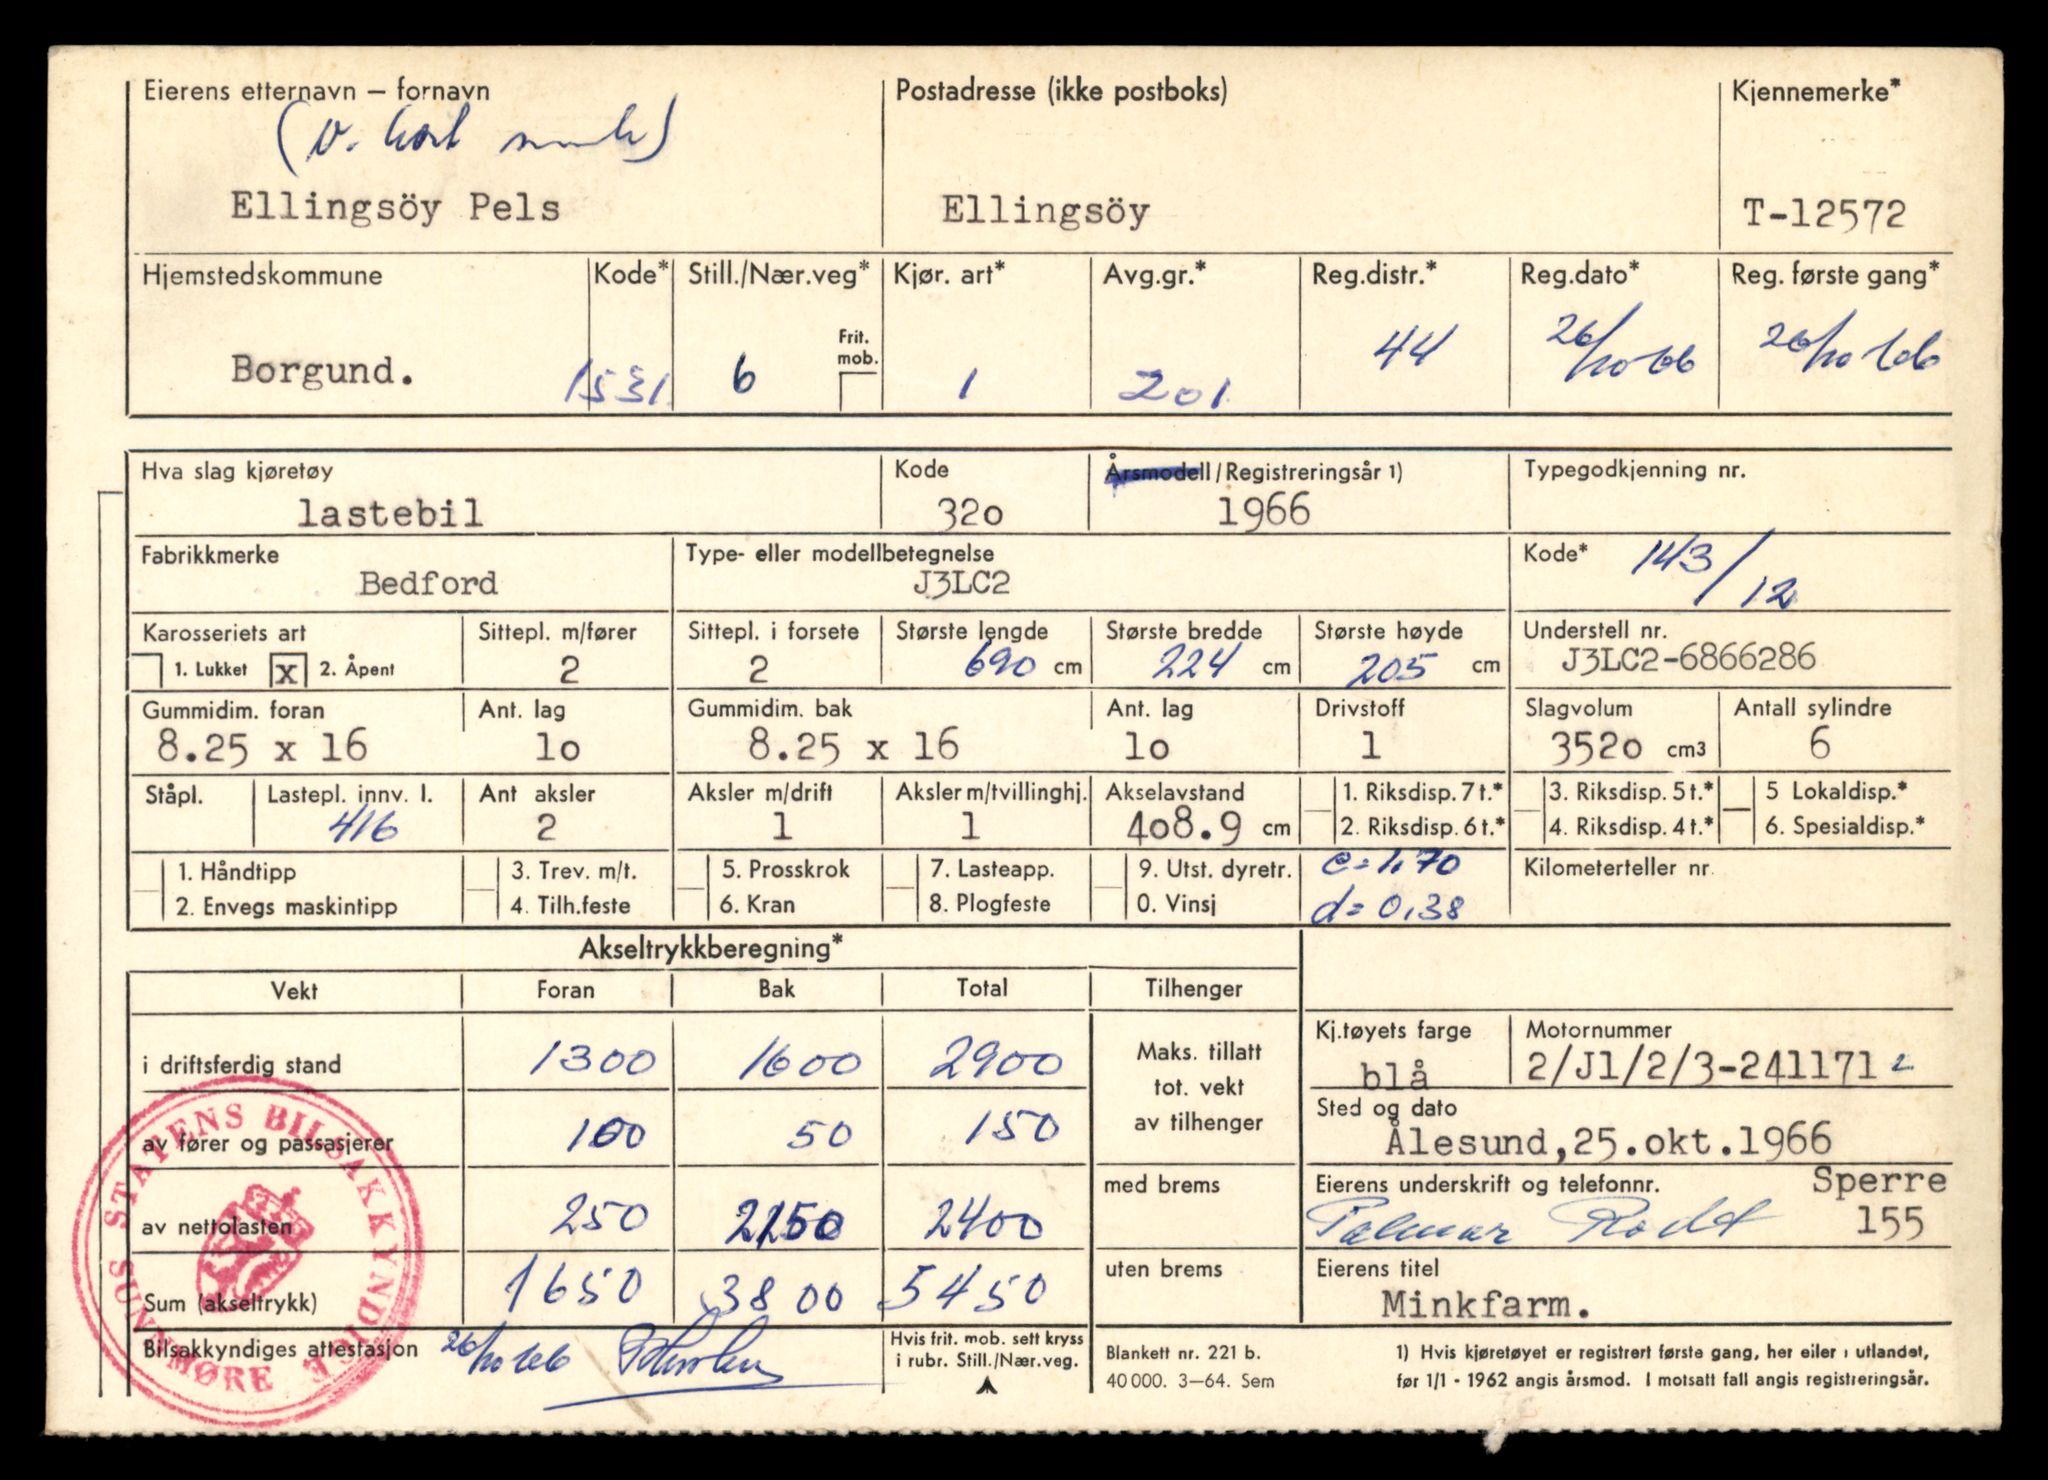 Eierens etternavn – fornavn Postadresse (ikke postboks) Kjennemerke*
(v.
Ellingsöy Pels Ellingsöy T-12572
Hjemstedskommune Kode* Still./Nær.veg* Kjør. art* Avg.gr.* Reg.distr.* Reg.dato* Reg. første gang*
Frit. mob.
Borgund. 1531 6 1 201 44 26/10 66 26/10 66
Hva slag kjøretøy Kode Årsmodell/Registreringsår 1) Typegodkjenning nr.
lastebil 320 1966
Fabrikkmerke Type- eller modellbetegnelse Kode* 143/12
Bedford J3LC2
Karosseriets art Sittepl. m/fører Sittepl. i forsete Største lengde Største bredde Største høyde Understell nr.
1. Lukket X 2. Åpent 2 2 690 cm 224 cm 205 cm J3LC2-6866286
Gummidim. foran Ant. lag Gummidim. bak Ant. lag Drivstoff Slagvolum Antall sylindre
8.25 x 16 10 8.25 x 16 10 1 3520 cm3 6
Ståpl. Lastepl. innv. l. Ant aksler Aksler m/drift Aksler m/tvillinghj. Akselavstand 1. Riksdisp. 7 t.* 3. Riksdisp. 5 t.* 5 Lokaldisp.*
416 2 1 1 408.9 cm 2. Riksdisp. 6 t.* 4. Riksdisp. 4 t.* 6. Spesialdisp.*
1. Håndtipp 3. Trev. m/t. 5. Prosskrok 7. Lasteapp. 9. Utst. dyretr. c=1,70 Kilometerteller nr.
2. Envegs maskintipp 4. Tilh.feste 6. Kran 8. Plogfeste 0. Vinsj d=0,38
Akseltrykkberegning*
Vekt Foran Bak Total Tilhenger
i driftsferdig stand 1300 1600 2900 Maks. tillatt tot. vekt av tilhenger
Kj.tøyets farge Motornummer
blå 2/J1/2/3-241171 2
Sted og dato
av fører og passasjerer 100 50 150
Ålesund,25.okt.1966
med brems Eierens underskrift og telefonnr. Sperre
av nettolasten 250 2150 2400 Palmar Rodt 155
uten brems Eierens titel
Sum (akseltrykk) 1650 3800 5450 Minkfarm.
Bilsakkyndiges attestasjon 26/10 66
Hvis frit. mob. sett kryss
i rubr. Still./Nær.veg.
Blankett nr. 221 b.
40 000. 3—64. Sem
1) Hvis kjøretøyet er registrert første gang, her eller i utlandet,
før 1/1 - 1962 angis årsmod. I motsatt fall angis registreringsår.
STATENS BILSAKKYNDIGE
SUNNMØRE